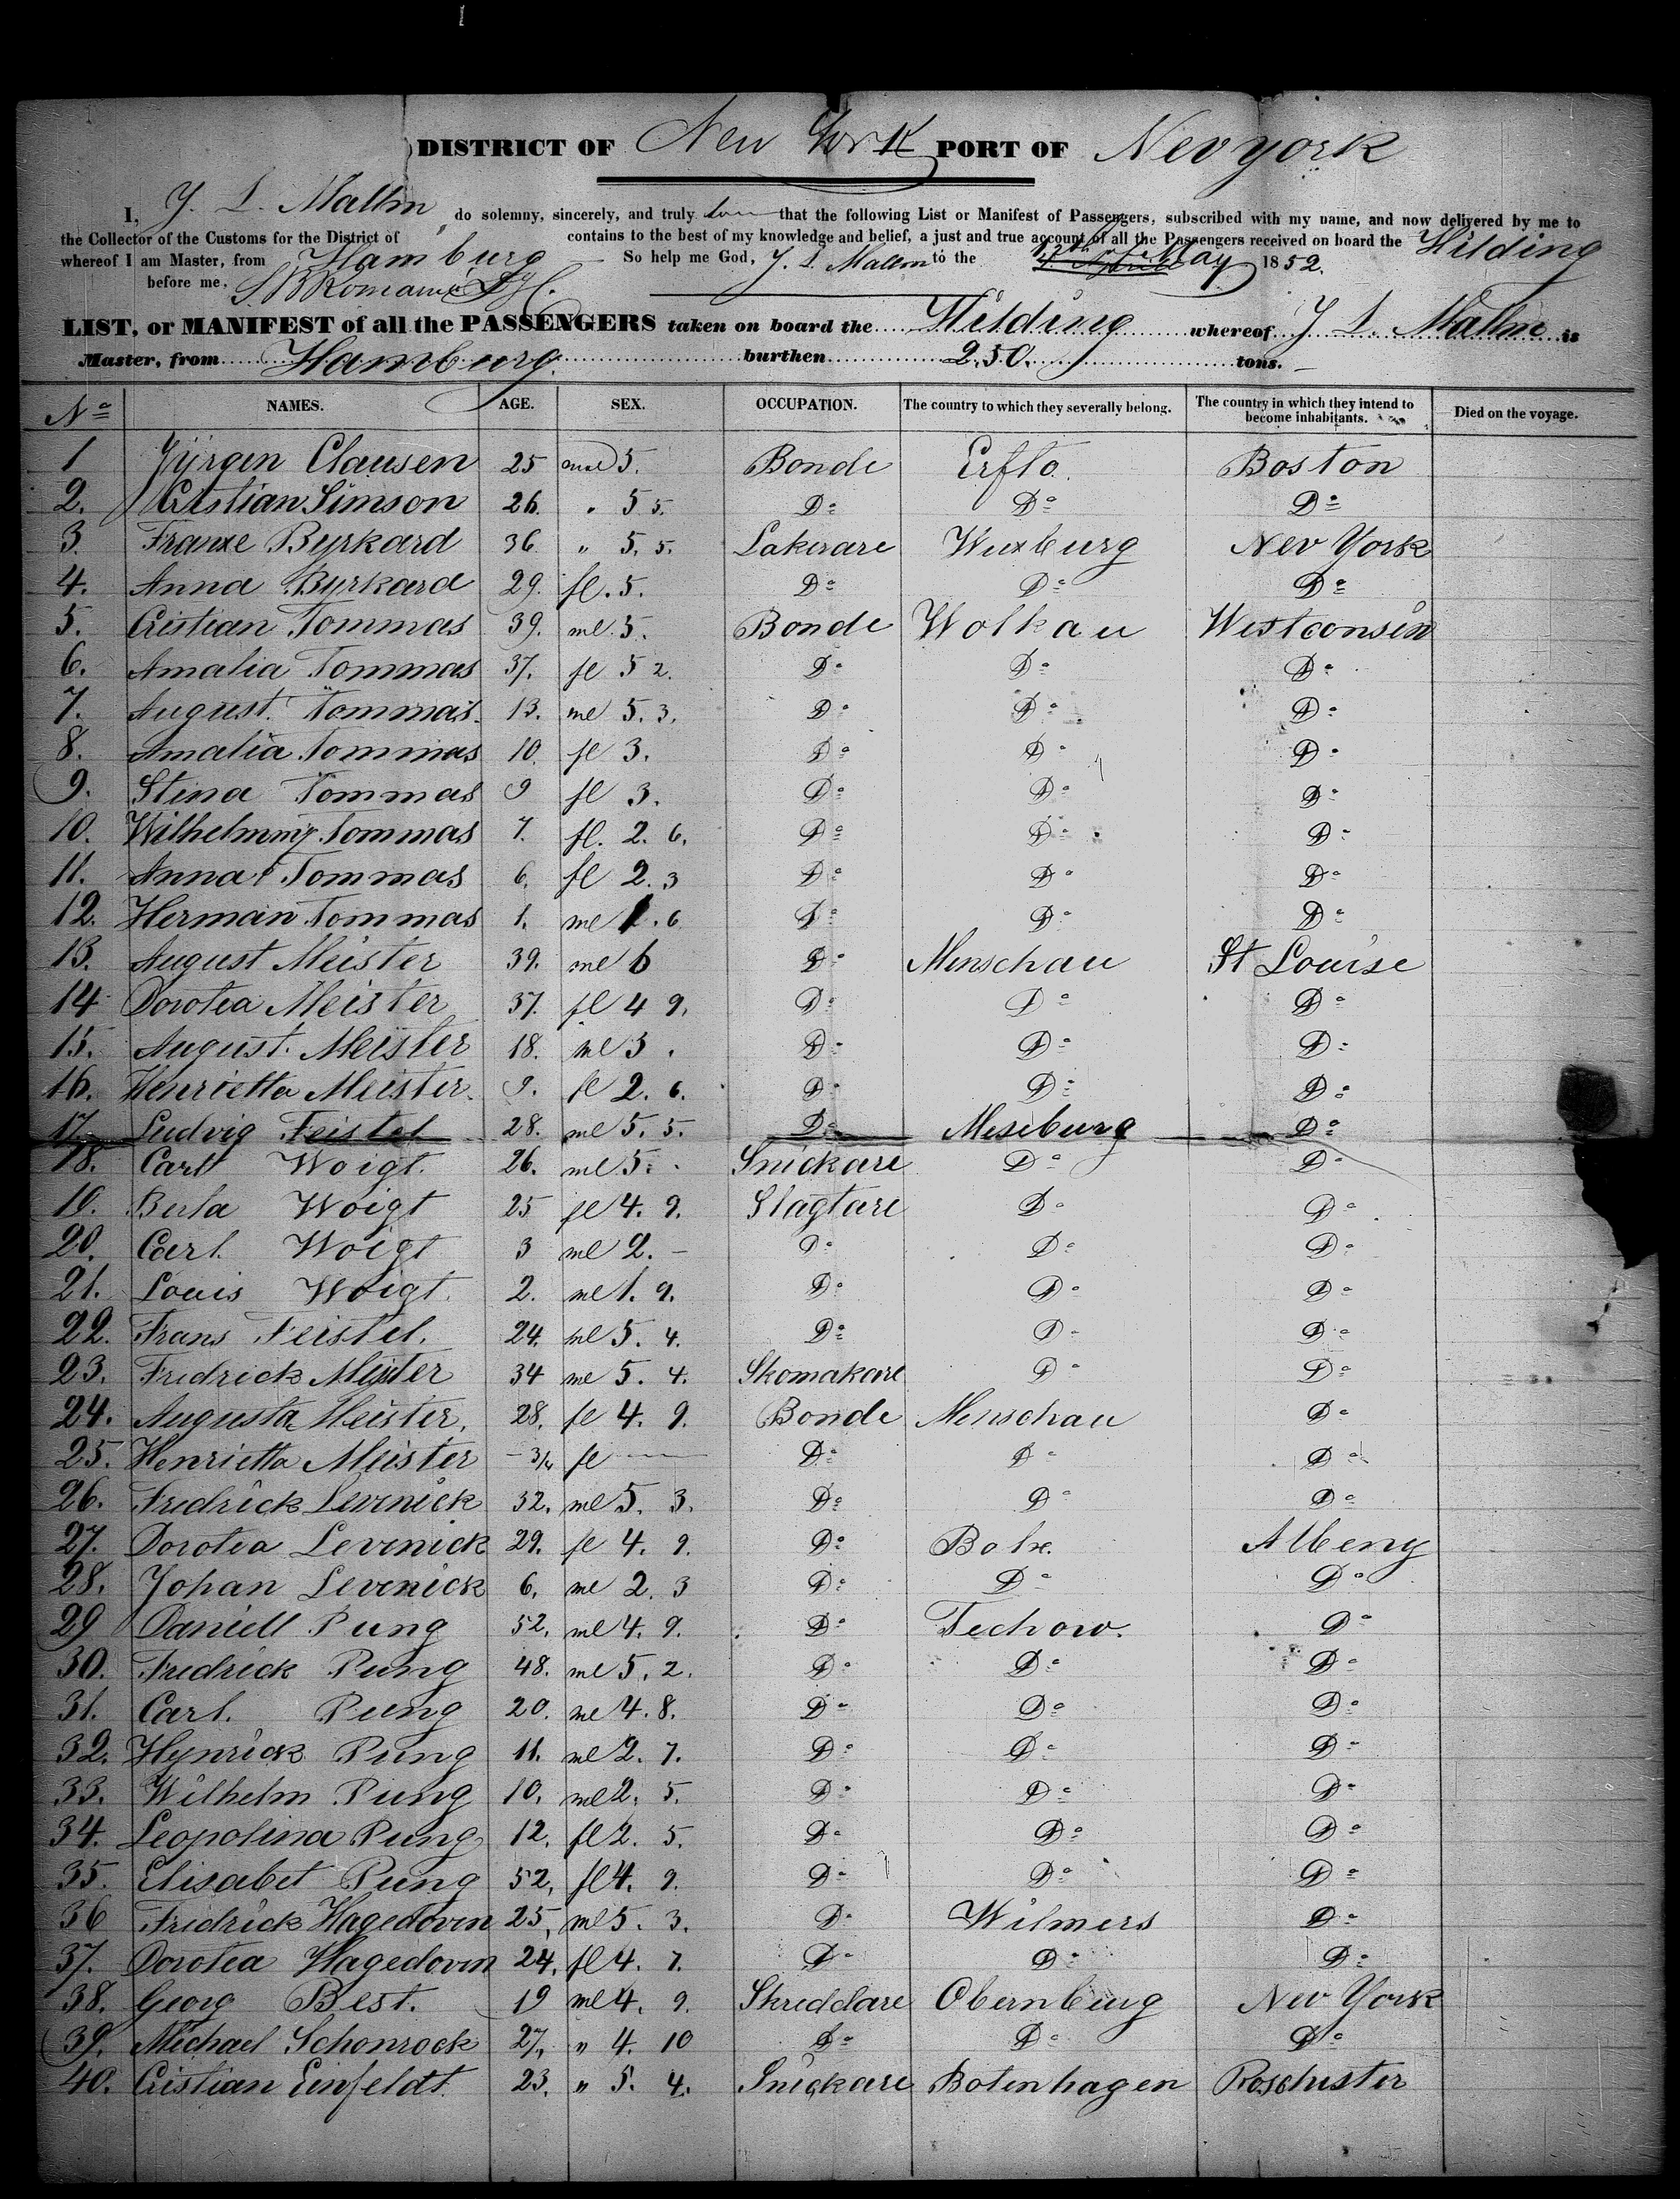 DISTRICT OF New York PORT OF Nevyork
I, J. L. Mallm do solemny, sincerely, and truly that the following List or Manifest of Passengers, subscribed with my name, and now delivered by me to
the Collector of the Customs for the District of contains to the best of my knowledge and belief, a just and true account of all the Passengers received on board the Hilding
whereof I am Master, from Hamburg So help me God, J. L. Mallm to the 12th of May 1852.
before me,
LIST, or MANIFEST of all the PASSENGERS taken on board the Hilding whereof J. L. Mallm is
Master, from Hamburg. burthen 250. tons.
No NAMES. AGE. SEX. OCCUPATION. The country to which they severally belong. The country in which they intend to become inhabitants. Died on the voyage.
1 Jÿrgen Clausen 25 5. Bonde Erfto. Boston
2. Cristian Simson 26. " 5 5. Do Do Do
3. Franxe Byrkard 36 " 5. 5. Lakerare Wuxburg Nev York
4. Anna Byrkard 29. fl. 5. Do Do Do
5. Cristian Tommas 39. ml. 5. Bonde Wolkau Westconsin
6. Amalia Tommas 37. fl 5 2. Do Do Do
7. August. Tommas. 13. ml 5. 3. Do Do Do
8. Amalia Tommas 10. fl 3. Do Do Do
9. Stina Tommas 9 fl 3. Do Do Do
10. Tommas 7. fl. 2. 6. Do Do Do
11. Anna Tommas 6. fl 2. 3 Do Do Do
12. Herman Tommas 1. ml 1. 6 Do Do Do
13. August Meister 39. ml 6 Do Menschau St Louise
14 Dorotea Meister 37. fl 4 9. Do Do Do
15. August. Meister 18. ml 3. Do Do Do
16. Henrietta Meister. 9. fl 2. 6. Do Do Do
17. Ludvig Feistel 28. ml 5. 5. Do Meseburg Do
18. Carl Woigt. 26. ml 5. Snickare Do Do
19. Berta Woigt 25 fl 4. 9. Slagtare Do Do
20. Carl. Woigt 3 ml 2. - Do Do Do
21. Louis Woigt. 2. ml 1. 9. Do Do Do
22. Frans Feistel. 24. ml 5. 4. Do Do Do
23. Fredrick Meister 34 ml 5. 4. Skomakare Do Do
24. Augusta Meister. 28. fl 4. 9. Bonde Menschau Do
25. Henrietta Meister - 3/4 fl Do Do Do
26. Fredrick Levenick 32. ml 5. 3. Do Do Do
27. Dorotea Levenick 29. fl 4. 9. Do Albeny
28. Johan Levenick 6. ml 2. 3 Do Do Do
29 Daniell Pung 52. ml 4. 9. Do Techow. Do
30. Fredrick Pung 48. ml 5. 2. Do Do Do
31. Carl. Pung 20. ml 4. 8. Do Do Do
32. Hynrick Pung 11. ml 2. 7. Do Do Do
33. Wilhelm Pung 10. ml 2. 5. Do Do Do
34. Leopolina Pung 12. fl 2. 5. Do Do Do
35. Elisabet Pung 52, fl 4. 9. Do Do Do
36 Fridrick Hagedorn 25, ml 5. 3. Do Wilmers Do
37. Dorotea Hagedorn 24. fl 4. 7. Do Do Do
38. Georg Best. 19 ml 4. 9. Skreddare Obernburg Nev York
39. Michael Schonrock 27, " 4. 10 Do Do Do
40. Cristian Einfeldt. 23. " 5. 4. Snickare Botenhagen Roschister